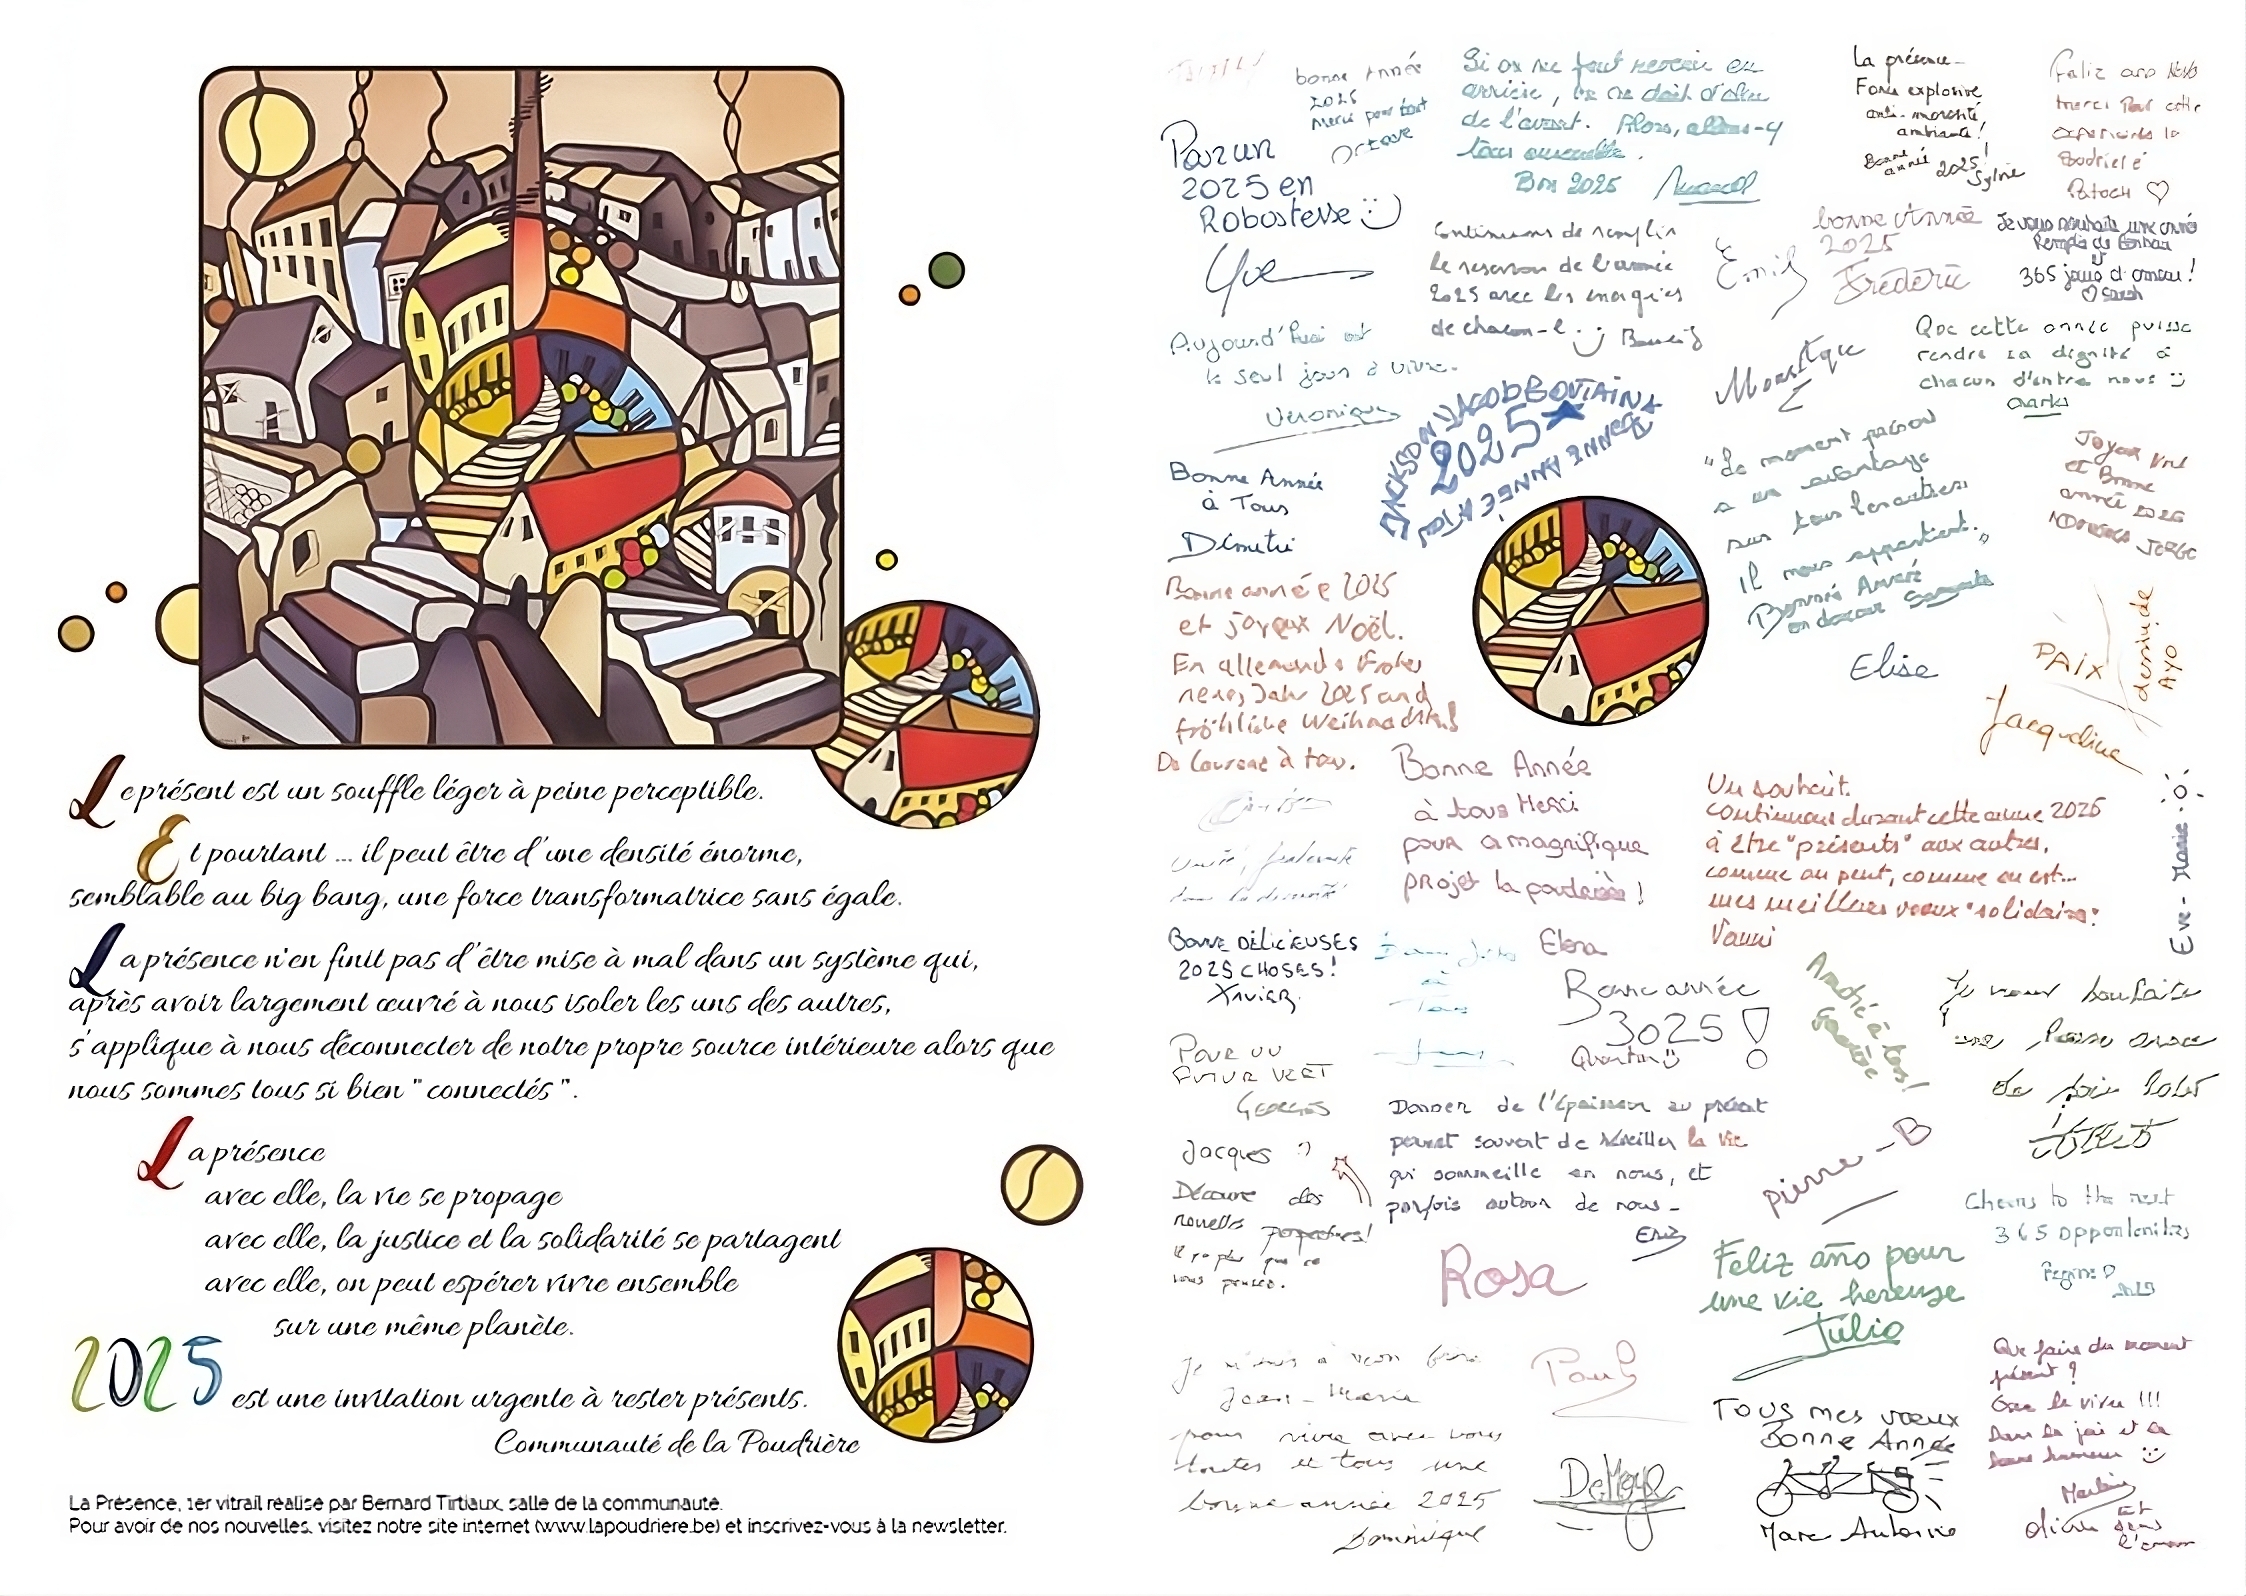 Le présent est un souffle léger à peine perceptible.
Et pourtant ... il peut être d'une densité énorme,
semblable au big bang, une force transformatrice sans égale.
La présence n'en finit pas d'être mise à mal dans un système qui,
après avoir largement œuvré à nous isoler les uns des autres,
s'applique à nous déconnecter de notre propre source intérieure alors que
nous sommes tous si bien " connectés ".
La présence
avec elle, la vie se propage
avec elle, la justice et la solidarité se partagent
avec elle, on peut espérer vivre ensemble
sur une même planète.
2025 est une invitation urgente à rester présents.
Communauté de la Poudrière
La Présence, 1er vitrail réalisé par Bernard Tirtiaux, salle de la communauté.
Pour avoir de nos nouvelles, visitez notre site internet (www.lapoudriere.be) et inscrivez-vous à la newsletter.
bonne Année
2025
merci pour tout
Octave
Pour un
2025 en
Robostesse
Si on ne peut revenir en
arrière,
de l'avant. Alors, allons-y
tous ensemble.
Bon 2025
La présence
Force explosive
anti-morosité,
ambiante!
Bonne
année 2025!
Sylvie
Feliz
merci
Patoch
bonne Année
2025
Frédéric
Emily
Je vous souhaite une année
Remplie de
365 jours d'amour!
Sarah
Continuons de remplir
le reservoir de l'année
2025 avec les énergies
de chacun-e.
Aujourd'hui est
le seul jour à vivre.
Véronique
Moustique
Que cette année puisse
rendre sa dignité à
chacun d'entre nous
Charles
JACKSON
2025
BONNE ANNÉE
Bonne Année
à Tous
Dimitri
"Le moment présent
a un avantage
sur tous les autres:
il nous appartient."
Elise
et Bonne
année
JORGE
Bonne année 2025
et joyeux Noël.
En allemand: Frohes
neues Jahr 2025 and
fröhliche Weihnachten!
PAIX
dessin de
AYO
Jacqueline
Bonne Année
à tous Merci
pour a magnifique
projet la poudrière!
Elena
Un souhait.
Continuons durant cette année 2025
à être "présents" aux autres,
comme on peut, comme on est...
mes meilleurs voeux "solidaires"
Vanni
Eve-Marie
Unité, fraternité
dans la diversité
BONNE DÉLICIEUSES
2025 CHOSES!
XAVIER.
à
Tous
Bonne année
3025!
Quentin
André à tous!
Je vous souhaite
une
POUR UN
FUTUR VERT
GEORGES
Donner de l'épaisseur au présent
permet souvent de réveiller la vie
qui sommeille en nous, et
parfois autour de nous-
Eric
Jacques :)
Découvre des
nouvelles perspectives!
pierre-B
Cheers to the next
365 opportunities
Rosa
Feliz año pour
une vie hereuse
Julio
Jean-Marie
pour vivre avec vous
toutes et tous une
bonne année 2025
Dominique
Paul
Tous mes vœux
Bonne Année
Marc Antoine
Que faire du moment
présent?
Que le vivre!!!
Dans la joie et la
bonne humeur